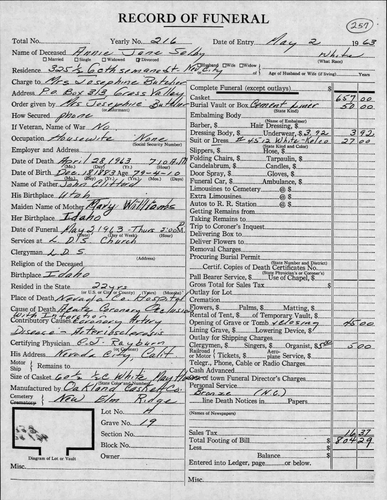 RECORD OF FUNERAL
257
Total No. Yearly No. 216 Date of Entry May 2 1963
Name of Deceased Annie Jane Selby White
Married Single Widowed Divorced Husband Wife Widow (What Race)
Residence 325½ Nev City Age of Husband or Wife (if living) Years
Charge to Mrs Josephine Butcher
Address P.O Box 313 Grass Valley
Order given by Mrs Josephine
How secured phone
If Veteran, Name of War No
Occupation Housewife None
(Social Security Number)
Employer and Address
Date of Death April 28, 1963 7:10 P.M
Date of Birth Dec. 18 1883 Age 79-4-10
Name of Father John Clifford
His Birthplace Utah
Maiden Name of Mother Mary Williams
Her Birthplace Idaho
Date of Funeral May 2 1963 Thurs 2:00
Services at L.D.S Church
Clergyman L.D.S
Religion of the Deceased
Birthplace Idaho
Resided in the State 22 yrs
Place of Death Nevada Co. Hospital
Cause of Death Acute Coronary Occlusion
With Infarction
Contributory Causes Coronary Artery
Disease -
Certifying Physician C.J. Rayburn
His Address Nevada City, Calif
Motor
Ship
Remains to
Size of Casket White
Manufactured by Oakland Casket Co.
Cemetery
Crematory New Elm Ridge
Lot No. H
Grave No. 19
Section No.
Block No.
Owner
Diagram of Lot or Vault
Misc.
Complete Funeral (except outlays) $
Casket 657.00
Burial Vault or Box Cement Liner 50.00
(Name of Embalmer)
Embalming Body
Barber, $ Hair Dressing, $
Dressing Body, $ Underwear, $ 3.92 3 92
Suit or Dress, $ 4512 White 27.00
(State Kind and Color)
Slippers, $ Hose, $
Folding Chairs, $ Tarpaulin, $
Candelabrum, $ Candles, $
Door Spray, $ Gloves, $
Funeral Car, $ Ambulance, $
Limousines to Cemetery @ $
Extra Limousines @ $
Autos to R. R. Station @ $
Getting Remains from
Taking Remains to
Trip to Coroner's Inquest
Delivering Box to
Deliver Flowers to
Removal Charges
Procuring Burial Permit
(State Number and District)
Certif. Copies of Death Certificates No.
(State Purveyor's or Coroner's)
Pall Bearer Service $ Use of Chapel, $
Total for Services $
Outlay for Lot
Cremation
Flowers, $ Palms, $ Matting, $
Rental of Tent, $ of Temporary Vault, $
Opening of Grave or Tomb & closing 45.00
Lining Grave, $ Lowering Device, $
Outlay for Shipping Charges
Clergymen, $ Singers, $ Organist, $5.00 5 00
Railroad or Motor Tickets, $ Aero-plane Service, $
Telegr., Phone, Cable or Radio Charges
Cash Advanced
Out of town Funeral Director's Charges
Personal Service
Bronze (N.C.)
line Death Notices in Papers
(Names of Newspapers)
Sales Tax 16.37
Total Footing of Bill $ 804 29
Less
Balance $
Entered into Ledger, page or below.
Misc.